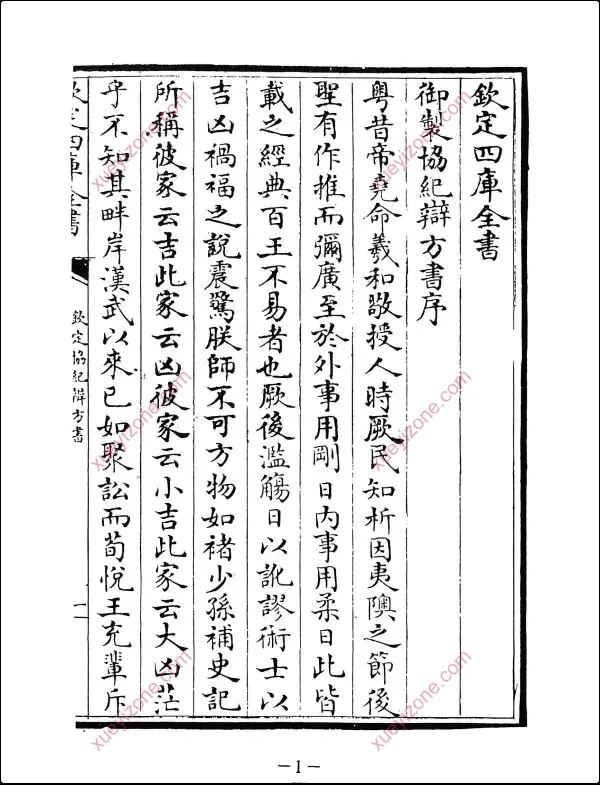 欽定四庫全書
御製協紀辯方書序
粵昔帝堯命羲和敬授人時厥民知析因夷隩之節後
聖有作推而彌廣至於外事用剛日内事用柔日此皆
載之經典百王不易者也厥後濫觴日以訛謬術士以
吉凶禍福之說震驚朕師不可方物如禇少孫補史記
所稱彼家云吉此家云凶彼家云小吉此家云大凶茫
乎不知其畔岸漢武以來已如聚訟而荀悅王充輩斥
欽定四庫全書
欽定協紀辯方書
一
－1－
xueyizone.com
xueyizone.com
xueyizone.com
xueyizone.com
xueyizone.com
xueyizone.com
xueyizone.com
xueyizone.com
xueyizone.com